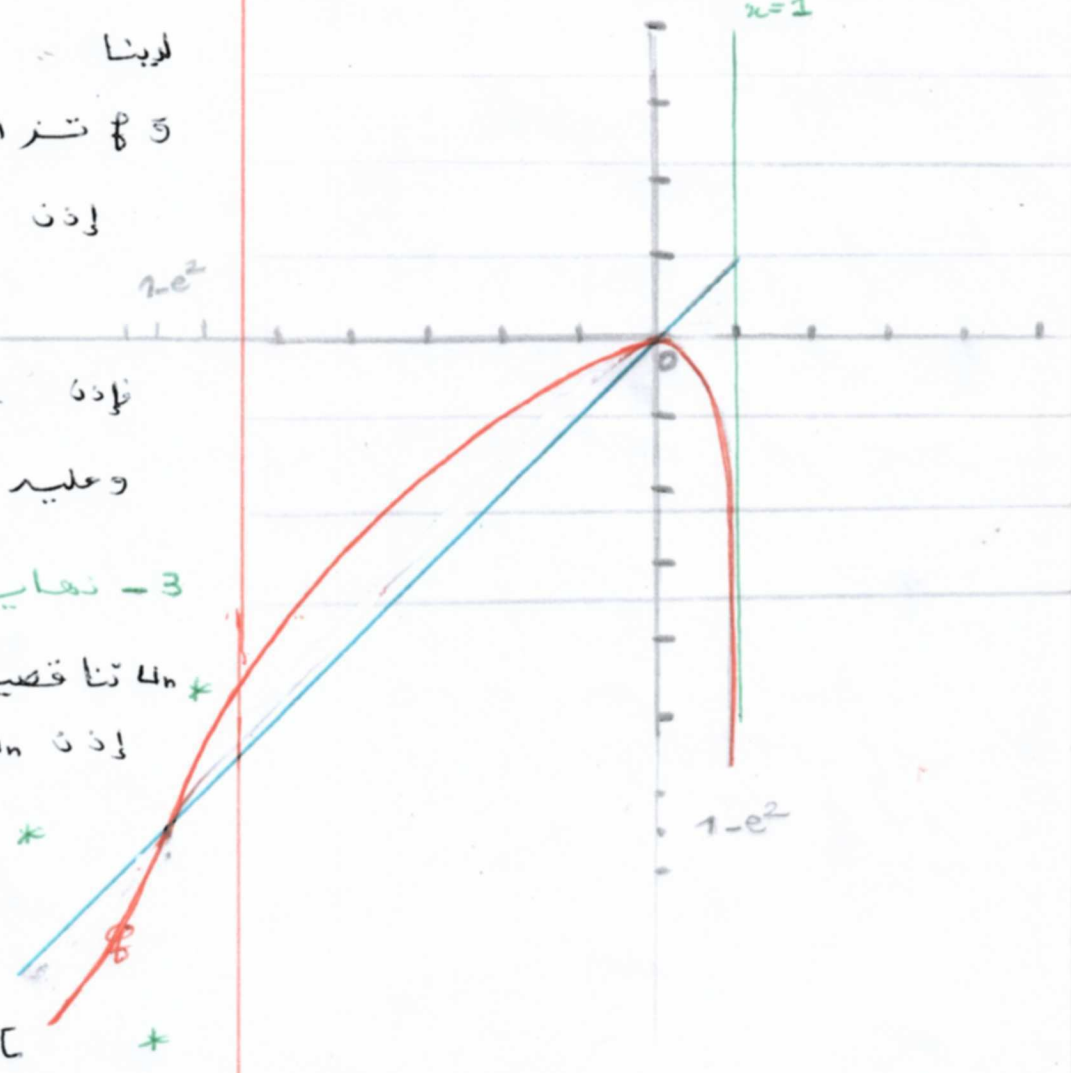 x=1
لدينا
و f تزا
إذن
1-e²
فإذن
وعليه
3 - نهاي
* uₙ تناقصي
إذن uₙ
*
1-e²
f
0
[
*